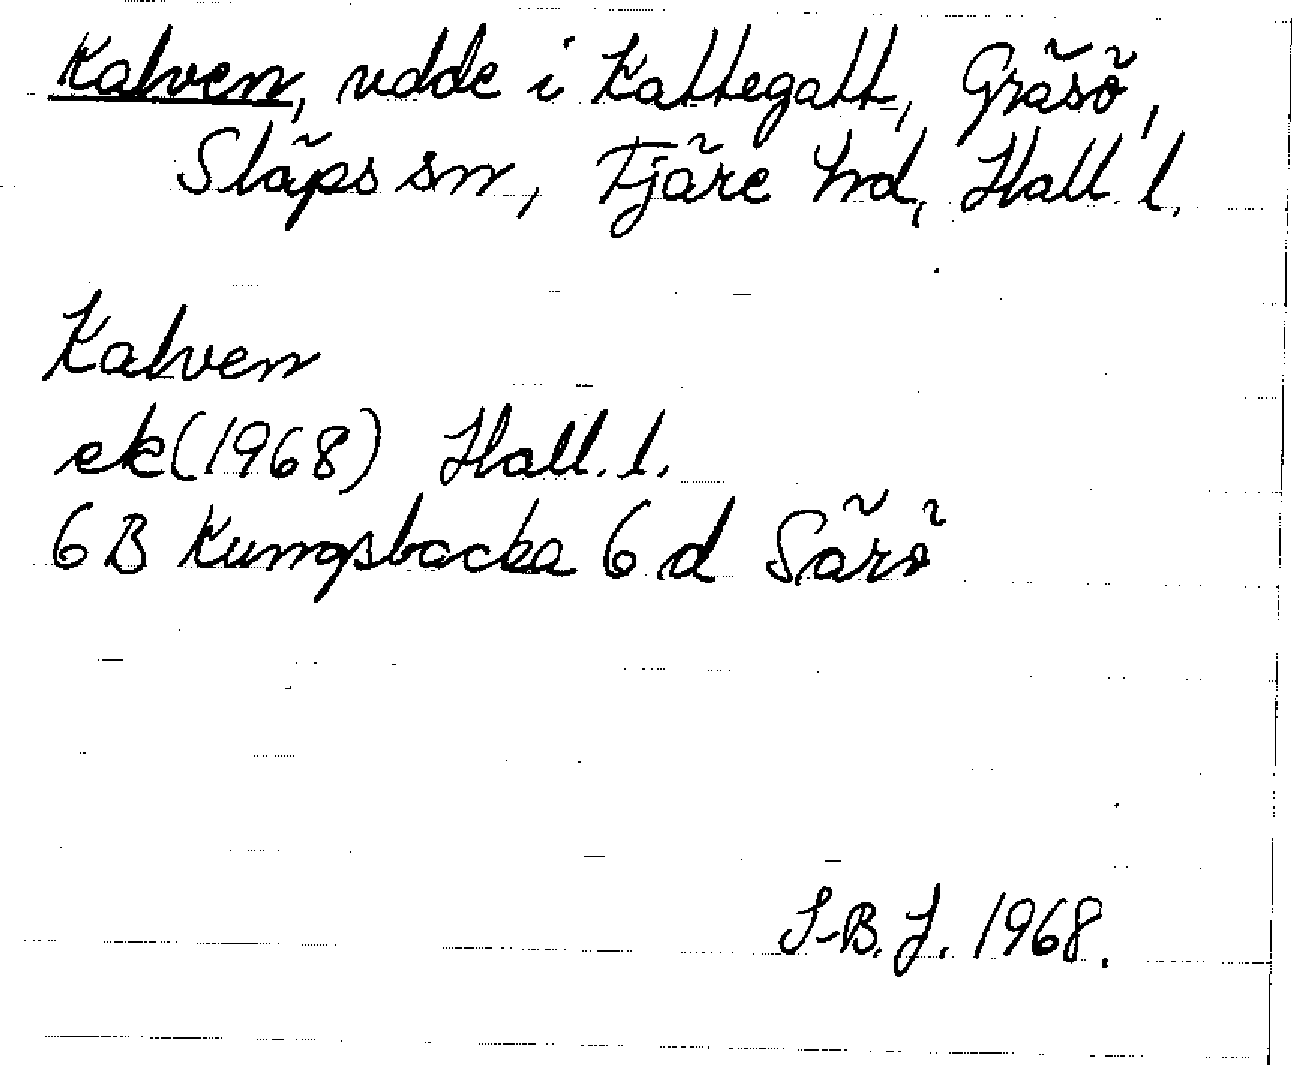 Kalven, udde i Kattegatt, Gräsö,
Släps sn, Fjäre hd, Hall. l.
Kalven
ek (1968) Hall. l.
6 B Kungsbacka 6 d Särö
S-B. J. 1968.